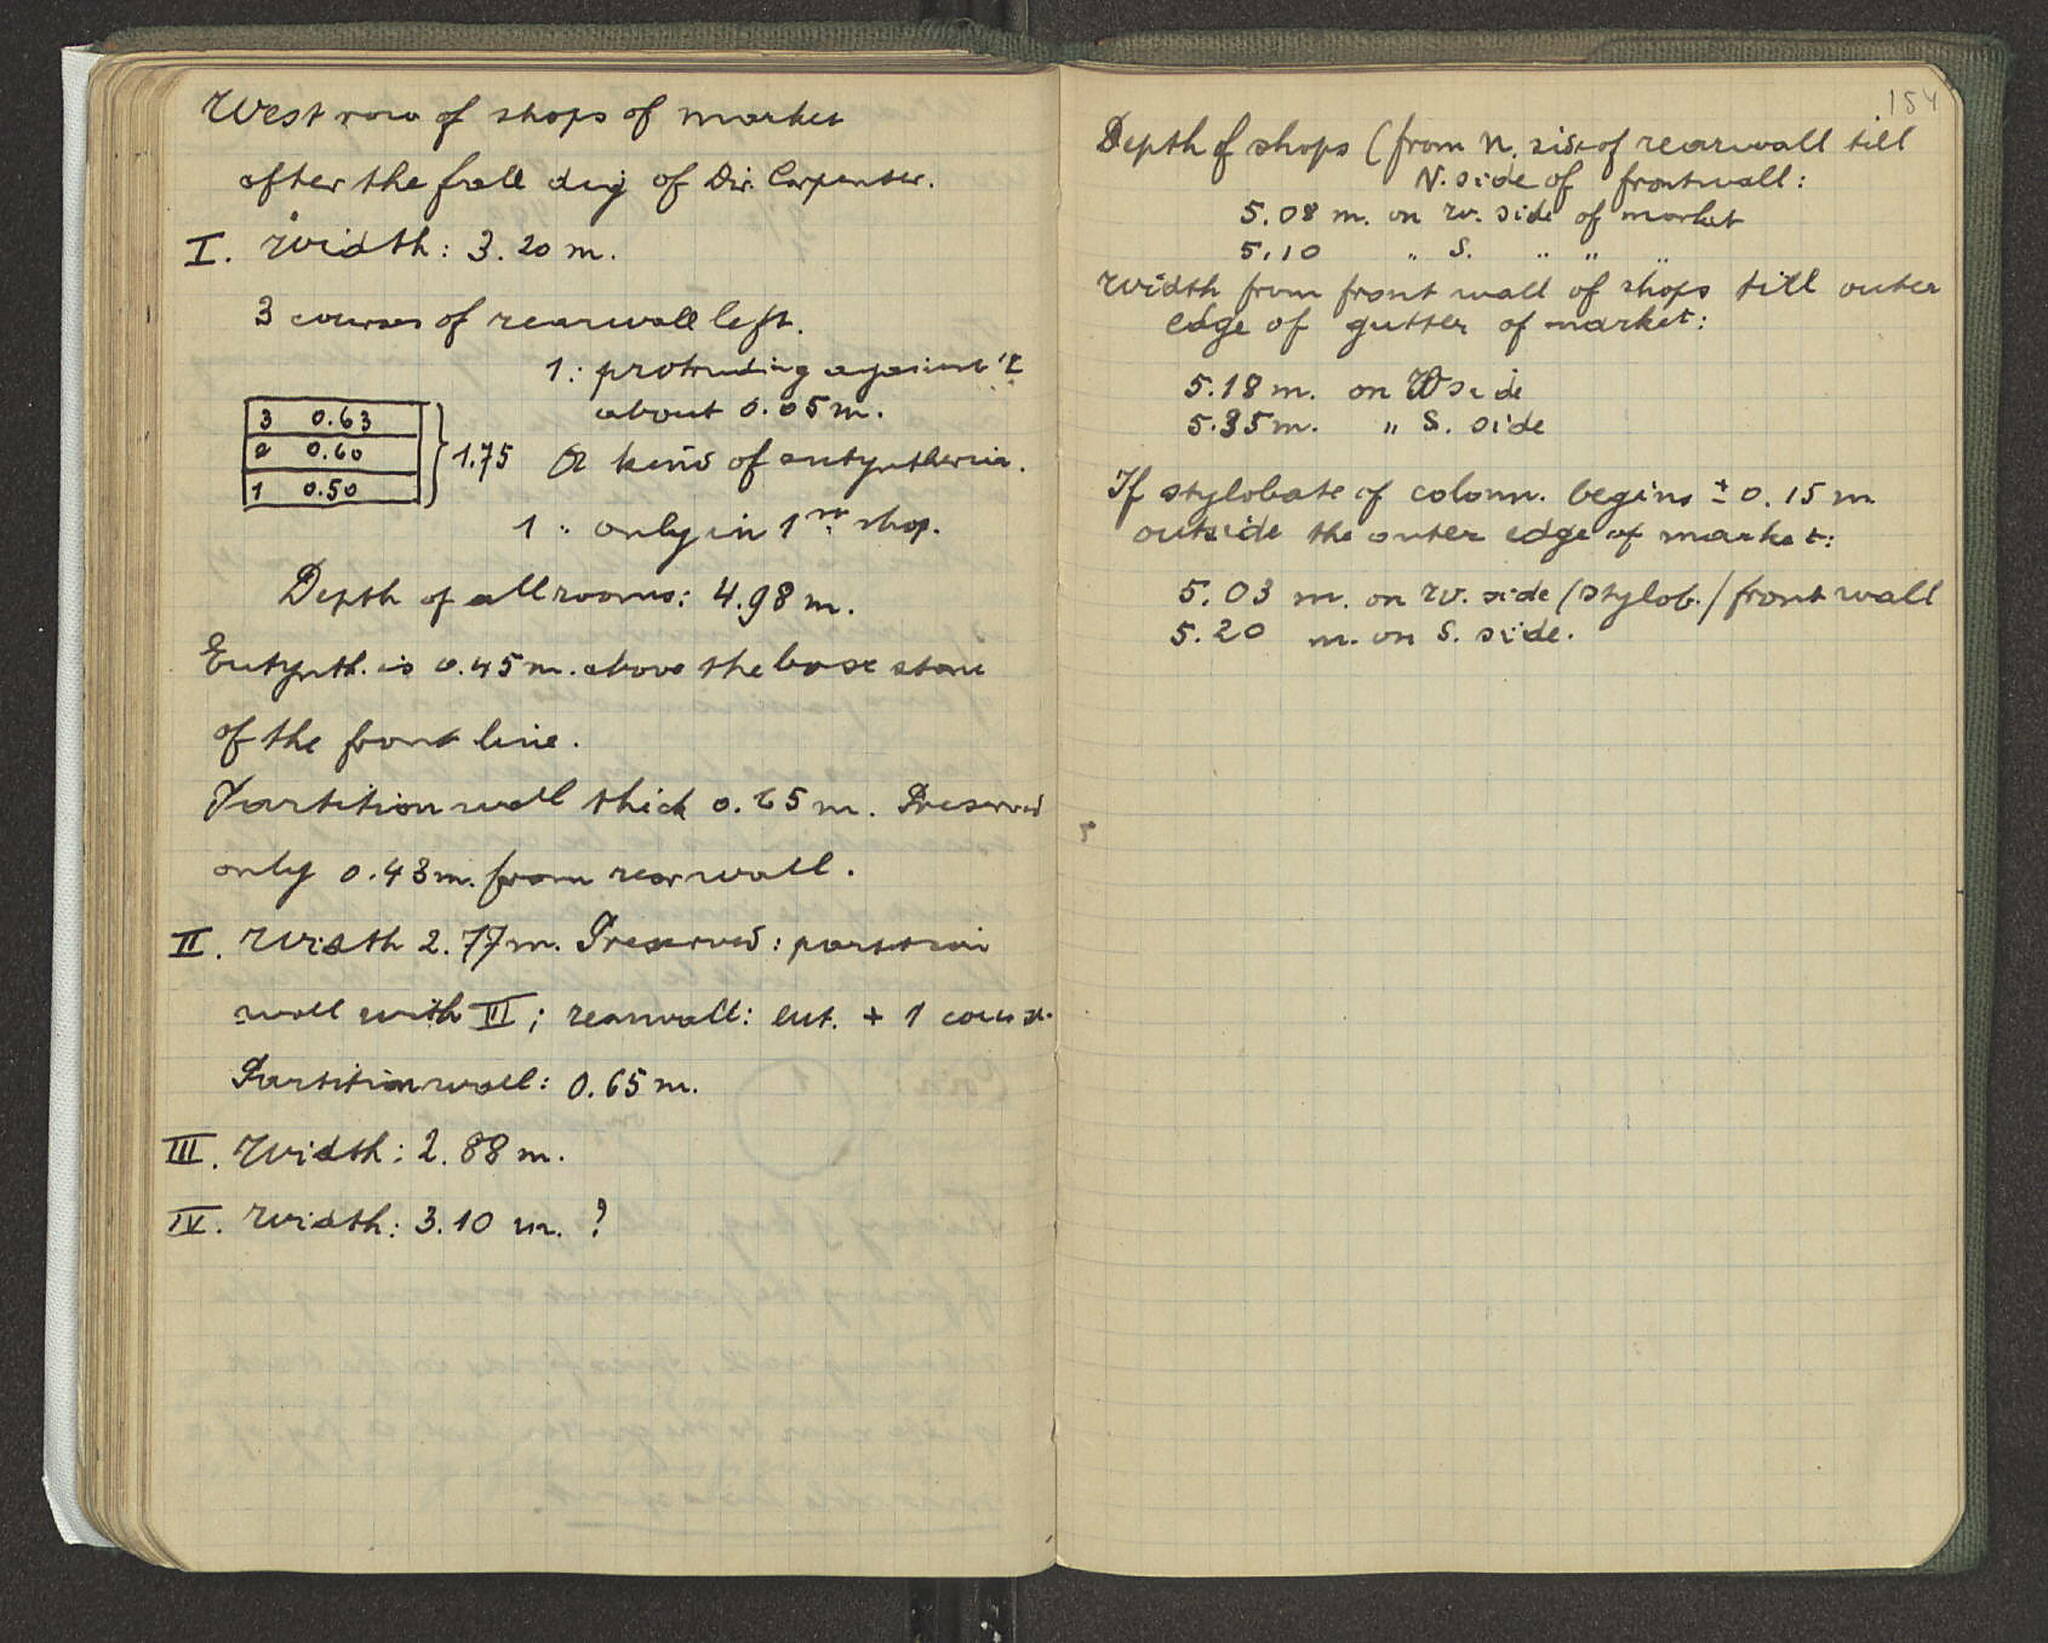 West row of shops of market
after the fall dig of Dir. Carpenter.
I. Width: 3.20 m.
3 courses of rearwall left.
1: protruding against 2
about 0.05 m.
3 0.63
2 0.60
1 0.50
1.75
A kind of eutyntheria.
1: only in 1st shop.
Depth of all rooms: 4.98 m.
Eutynth. is 0.45 m. above the base stone
of the front line.
Partition wall thick 0.65 m. Preserved
only 0.43 m. from rearwall.
II. Width 2.77 m. Preserved: partition
wall with III; rearwall: eut. + 1 course.
Partition wall: 0.65 m.
III. Width: 2.88 m.
IV. Width: 3.10 m. ?
154
Depth of shops (from N. side of rearwall till
N. side of frontwall:
5.08 m. on W. side of market
5.10 " S. " " "
Width from front wall of shops till outer
edge of gutter of market:
5.18 m. on W side
5.35 m. " S. side
If stylobate of colonn. begins ± 0.15 m
outside the outer edge of market:
5.03 m. on W. side (stylob./front wall
5.20 m. on S. side.